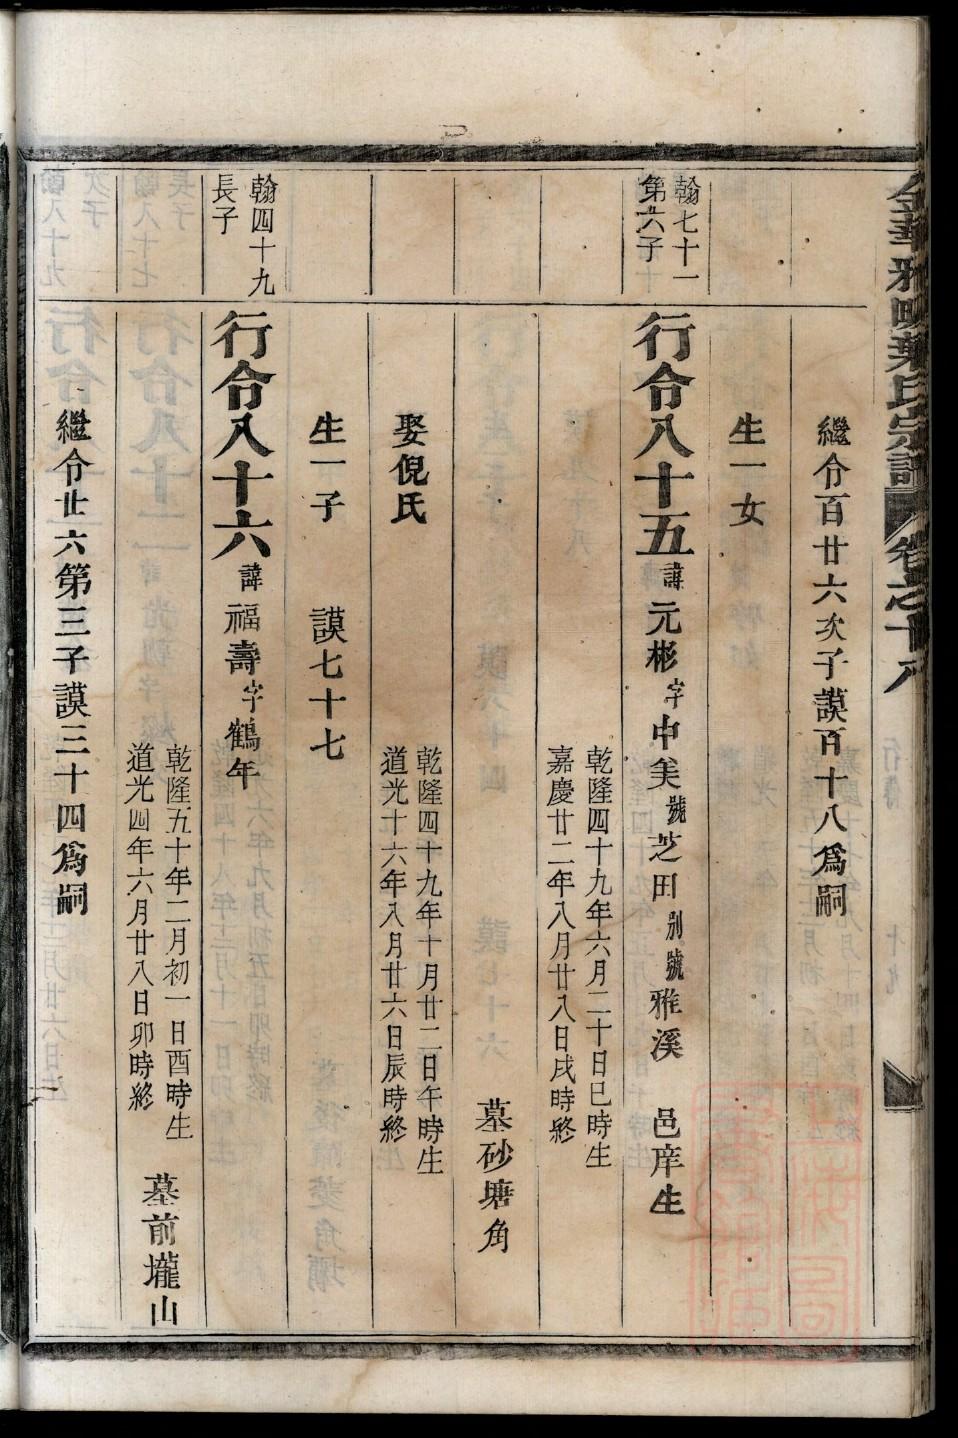 繼令百廿六次子謨百十八爲嗣
生一女
翰七十一
第六子
行令八十五諱元彬字中美號芝田別號雅溪 邑庠生
乾隆四十九年六月二十日巳時生
嘉慶廿二年八月廿八日戌時終
墓砂塘角
娶倪氏
乾隆四十九年十月廿二日午時生
道光十六年八月廿六日辰時終
生一子 謨七十七
翰四十九
長子
行令八十六諱福壽字鶴年
乾隆五十年二月初一日酉時生
道光四年六月廿八日卯時終
墓前壠山
繼令廿六第三子謨三十四爲嗣